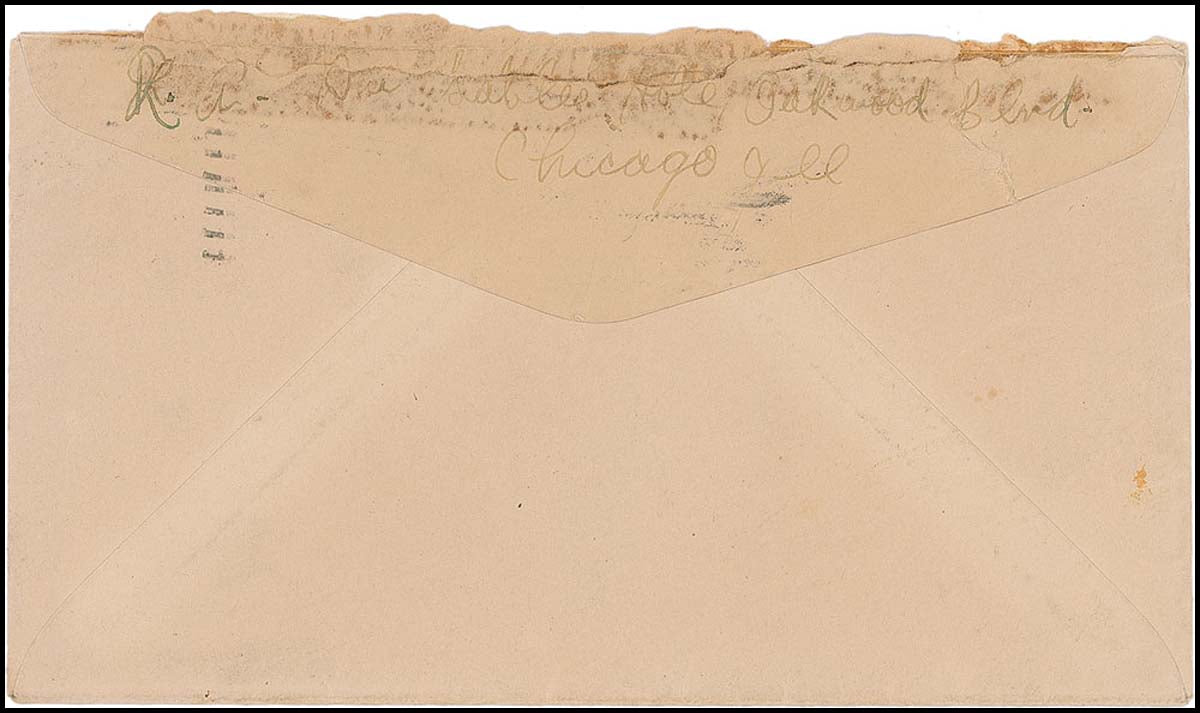 R. A. - Du Oakwood Blvd.
Chicago Ill